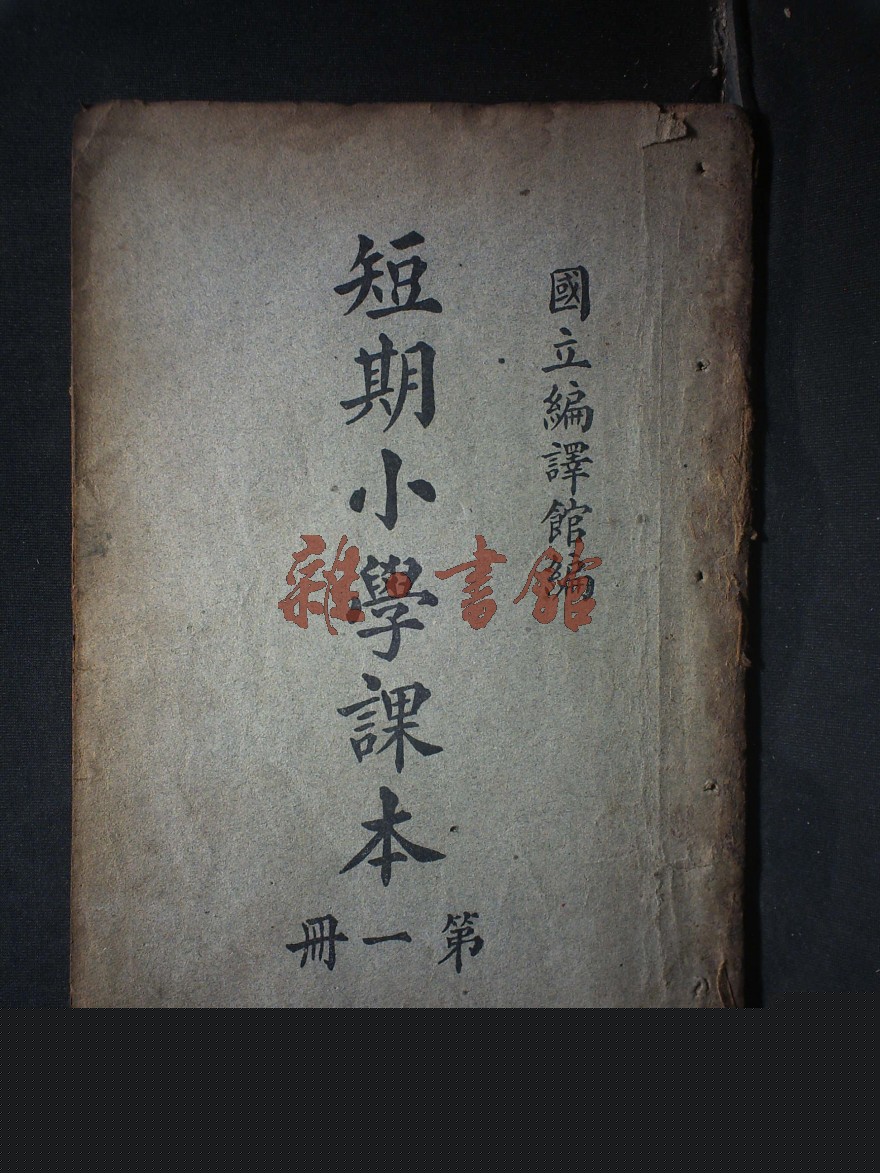 國立編譯館編
短期小學課本
第一冊
雜·書館